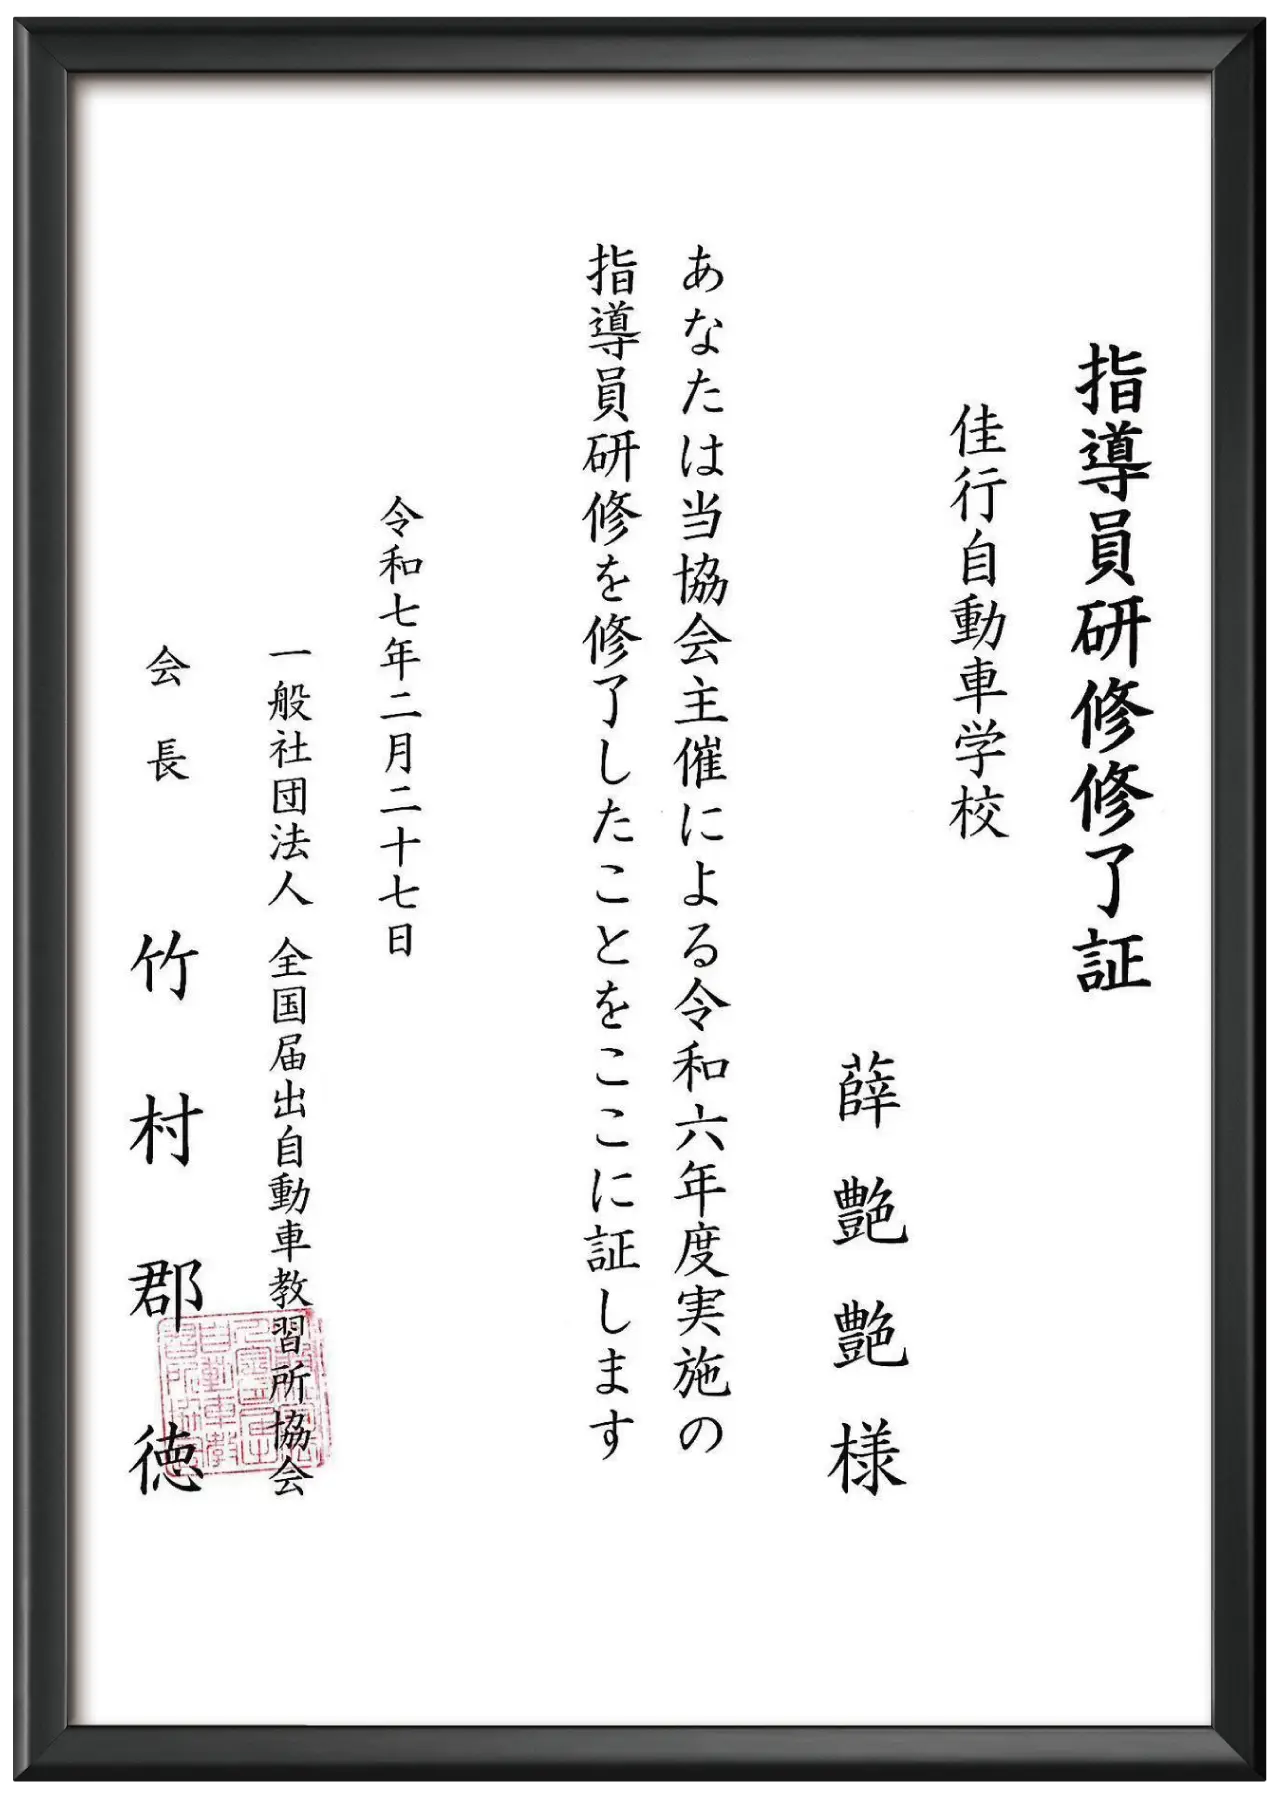 指導員研修修了証
佳行自動車学校
薛艶艶様
あなたは当協会主催による令和六年度実施の
指導員研修を修了したことをここに証します
令和七年二月二十七日
一般社団法人 全国届出自動車教習所協会
会長 竹村郡徳